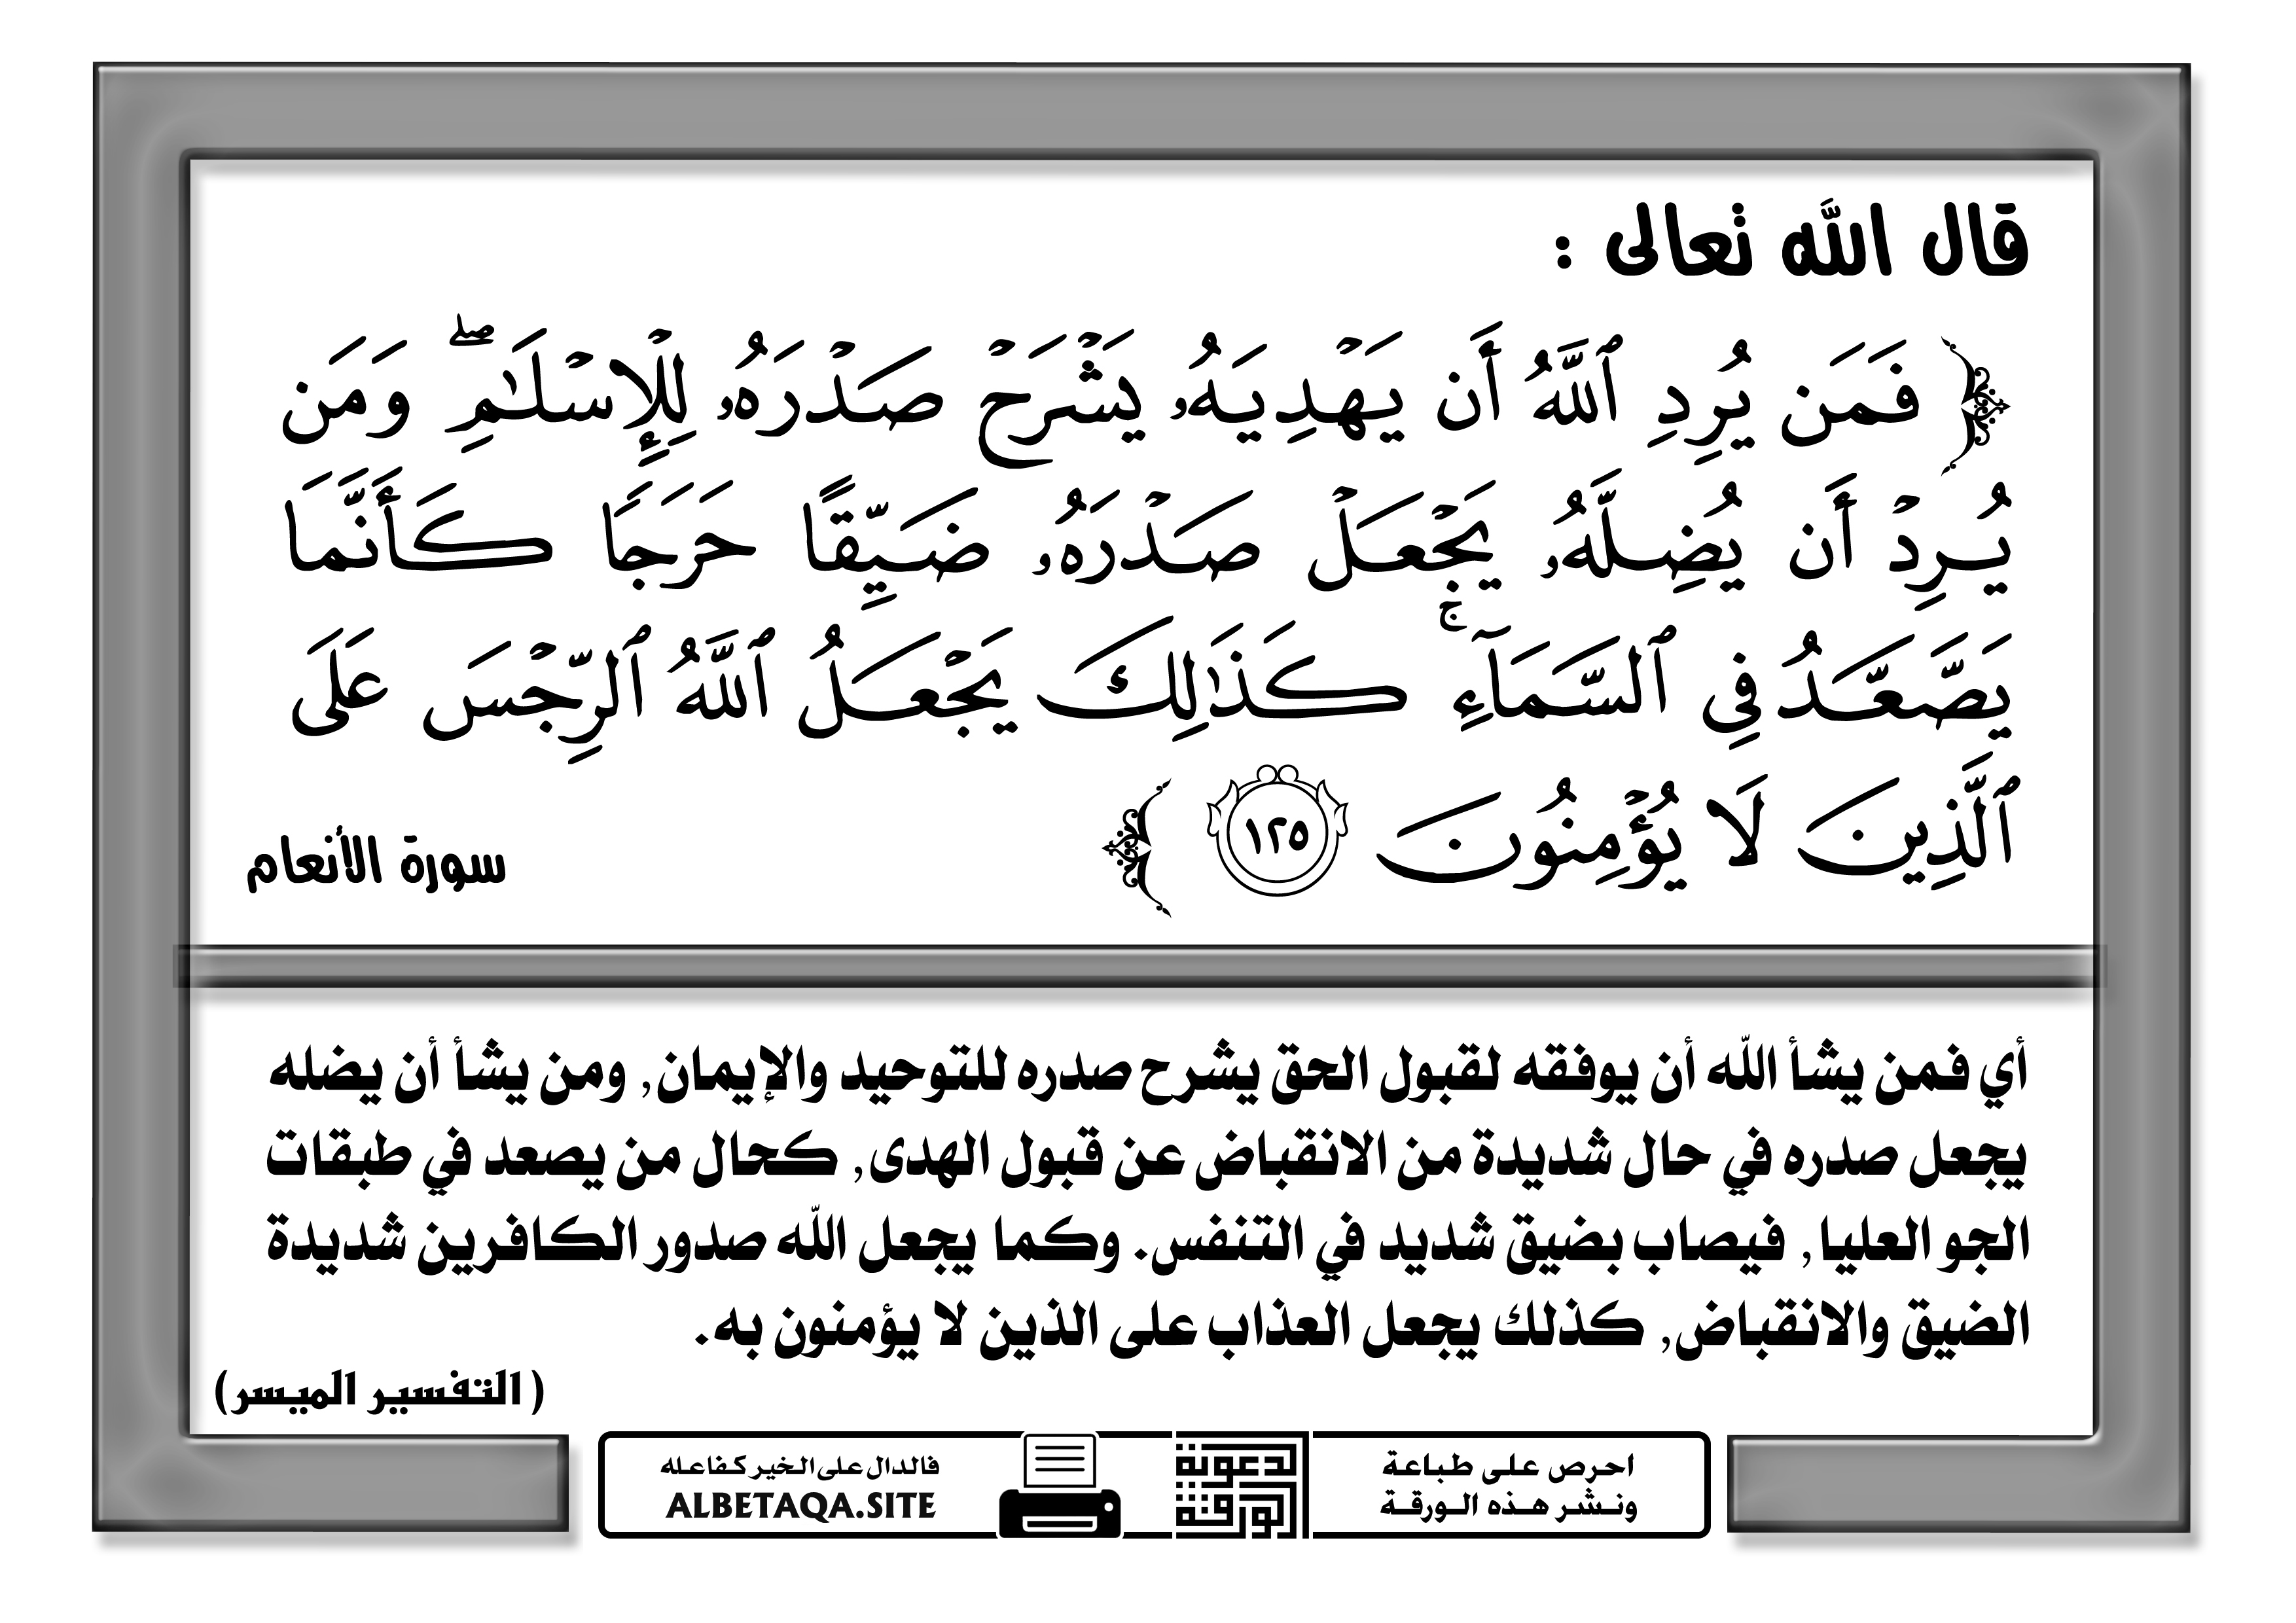 قال الله تعالى :
﴿ فَمَن يُرِدِ ٱللَّهُ أَن يَهْدِيَهُۥ يَشْرَحْ صَدْرَهُۥ لِلْإِسْلَـٰمِ ۖ وَمَن
يُرِدْ أَن يُضِلَّهُۥ يَجْعَلْ صَدْرَهُۥ ضَيِّقًا حَرَجًا كَأَنَّمَا
يَصَّعَّدُ فِي ٱلسَّمَآءِ ۚ كَذَٰلِكَ يَجْعَلُ ٱللَّهُ ٱلرِّجْسَ عَلَى
ٱلَّذِينَ لَا يُؤْمِنُونَ ١٢٥ ﴾
سورة الأنعام
أي فمن يشأ الله أن يوفقه لقبول الحق يشرح صدره للتوحيد والإيمان, ومن يشأ أن يضله
يجعل صدره في حال شديدة من الانقباض عن قبول الهدى, كحال من يصعد في طبقات
الجو العليا, فيصاب بضيق شديد في التنفس. وكما يجعل الله صدور الكافرين شديدة
الضيق والانقباض, كذلك يجعل العذاب على الذين لا يؤمنون به.
( التفسير الميسر)
احرص على طباعة
ونشر هذه الورقة
الدعوية
الورقة
فالدال على الخير كفاعله
ALBETAQA.SITE